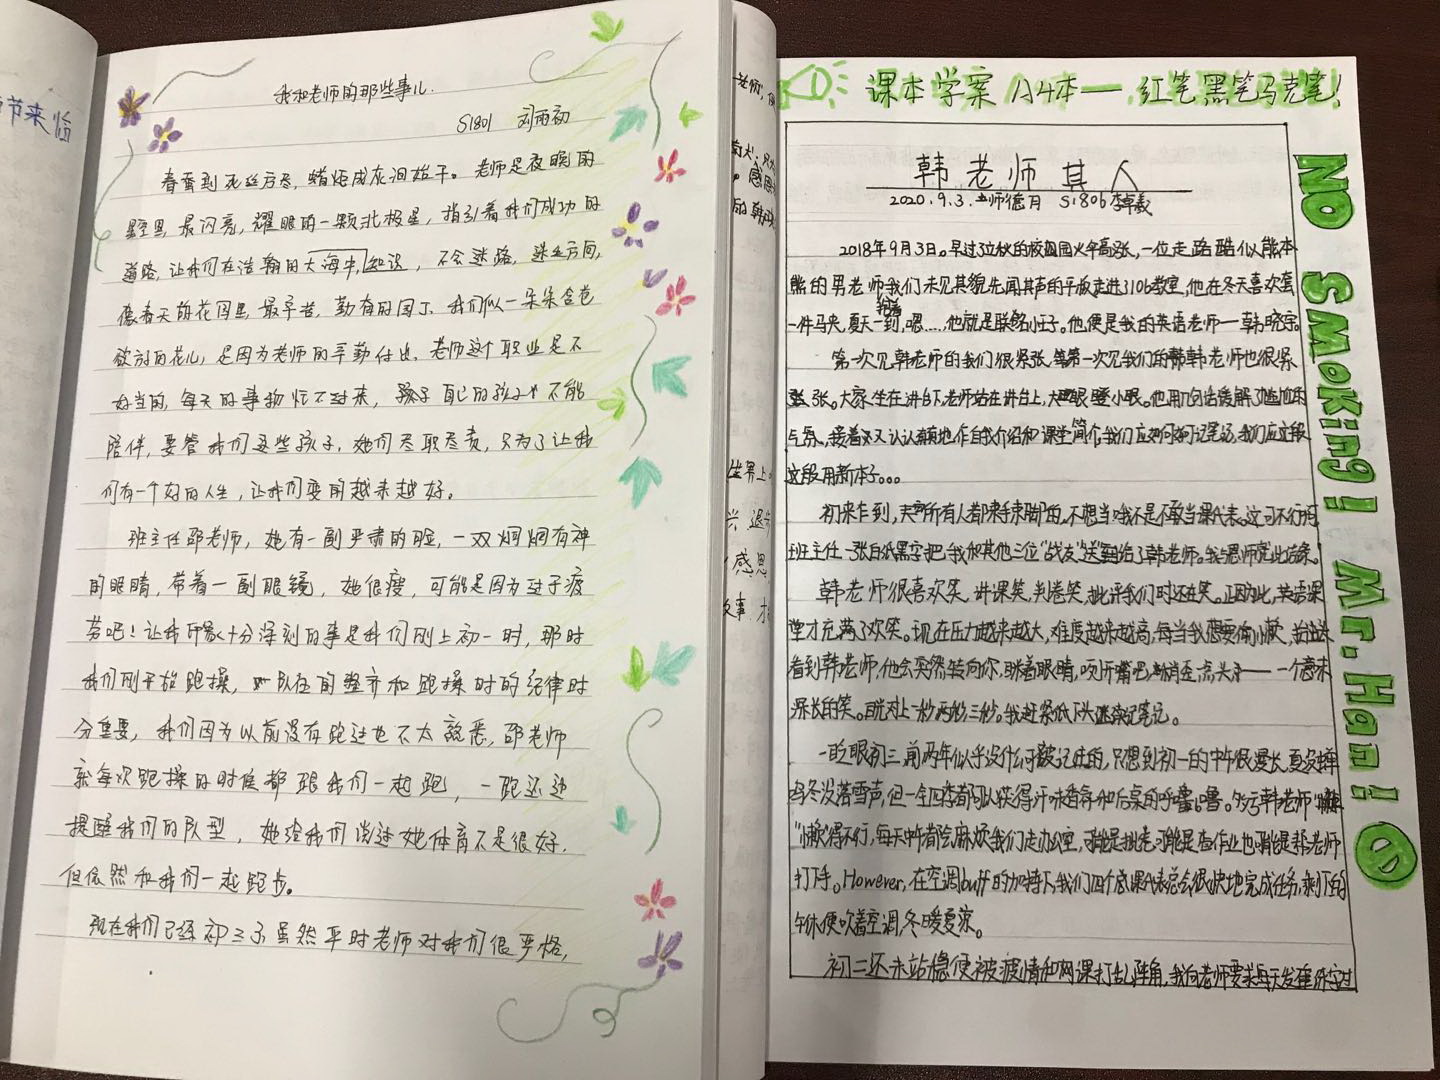 节来临
我和老师的那些事儿.
S1801 刘雨初
春蚕到死丝方尽,蜡炬成灰泪始干。老师是夜晚的
星空里,最闪亮,耀眼的一颗北极星,指引着我们成功的
道路,让我们在浩瀚的大海中,知识,不会迷路,迷失方向,
像春天的花园里最辛苦,勤奋的园丁,我们似一朵朵含苞
欲放的花儿,是因为老师的辛勤付出,老师这个职业是不
好当的,每天的事物忙不过来,孩子自己的孩子也不能
陪伴,要管我们这些孩子,她们尽职尽责,只为了让我
们有一个好的人生,让我们变的越来越好。
班主任邵老师,她有一副严肃的脸,一双炯炯有神
的眼睛,带着一副眼镜,她很瘦,可能是因为过于疲
劳吧!让我印象十分深刻的事是我们刚上初一时,那时
我们刚开始跑操,队伍的整齐和跑操时的纪律时
分重要,我们因为以前没有跑过也不太熟悉,邵老师
就每次跑操的时候都跟我们一起跑,一跑还边
提醒我们的队型,她给我们说过她体育不是很好,
但依然和我们一起跑步。
现在我们已经初三了虽然平时老师对我们很严格,
老师,
感恩
坐界上
感恩
故事
课本学案 A4本——红笔黑笔马克笔!
韩老师其人
2020.9.3. 师德月 S1806 李卓羲
2018年9月3日。早过立秋的校园因火伞高张,一位走路酷似熊本
熊的男老师我们未见其貌先闻其声的平板走进3106教室,他在冬天喜欢套
一件马夹,夏天一到,嗯……他就是联名小王子。他便是我的英语老师——韩晓宇。
第一次见韩老师的我们很紧张,第一次见我们的韩老师也很紧
张。大家坐在讲台下,老师站在讲台上,大眼瞪小眼。他用几句话缓解了尴尬的
气氛,接着又认认真真地作自我介绍和课堂简介,我们应如何记笔记,我们应这段
这段用新本子。。。
初来乍到,天下所有人都束手束脚的。不想当哦不是不敢当课代表。这可不行,呵
班主任一张白纸黑字把我和其他三位"战友"送到给了韩老师。我与恩师就此结缘。
韩老师很喜欢笑,讲课笑,判卷笑,批评我们时还在笑。正因为此,英语课
堂才充满了欢笑。现在压力越来越大,难度越来越高,每当我想要偷小懒,抬头
看到韩老师,他会突然转向你,眯着眼睛,咬咂嘴吧,稍歪点头——一个意味
深长的笑。目光对上一秒两秒三秒。我赶紧低下头继续记笔记。
一眨眼初三,前两年似乎没什么可被记住的,只想到初一的中午很漫长,夏没蝉
鸣冬没落雪声,但一年四季都可以获得泙味香气和后桌的呼噜噜。多亏韩老师"
"懒得不行,每天中午都会麻烦我们走办公室,可能是批卷可能是查作业也可能是帮老师
打下手。However,在空调buff的加持下我们四个总课代表总会很快地完成任务,剩下的
午休便吹着空调,冬暖夏凉。
初二还未站稳便被疫情和网课打乱阵角,我向老师要求每天发单练字过
NO SMoking! Mr.Han!